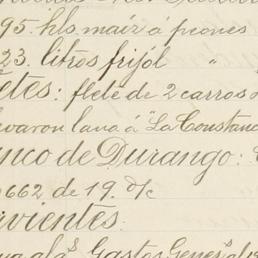 95 hls. maíz á peones
23. litros frijol "
etes: flete de 2 carros
varon lana á "La Constanc
anco de Durango:
662 de 19. o/c
rvientes:
Gastos Genes